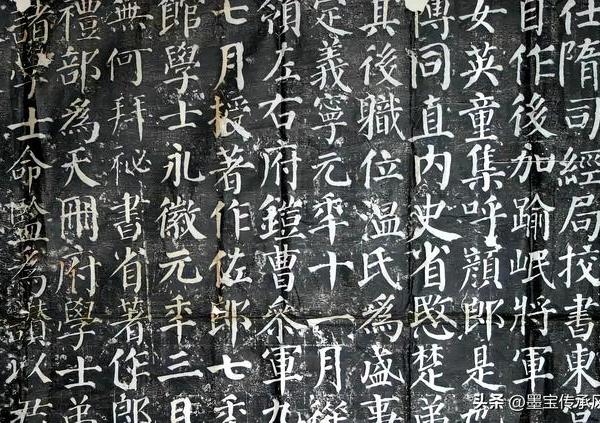 仕隋司經局挍書東
自作後加踰岷將軍
女英童集呼顏郎是
傳同直内史省愍楚弟
其後職位温氏為盛事
定義寧元年十一月
領左右府鎧曹叅軍九
七月授著作佐郎七年
館學士永徽元年三月
無何拜祕書省著作郎
禮部為天冊府學士弟
諸學士命監為讚以君
头条 @墨宝传承